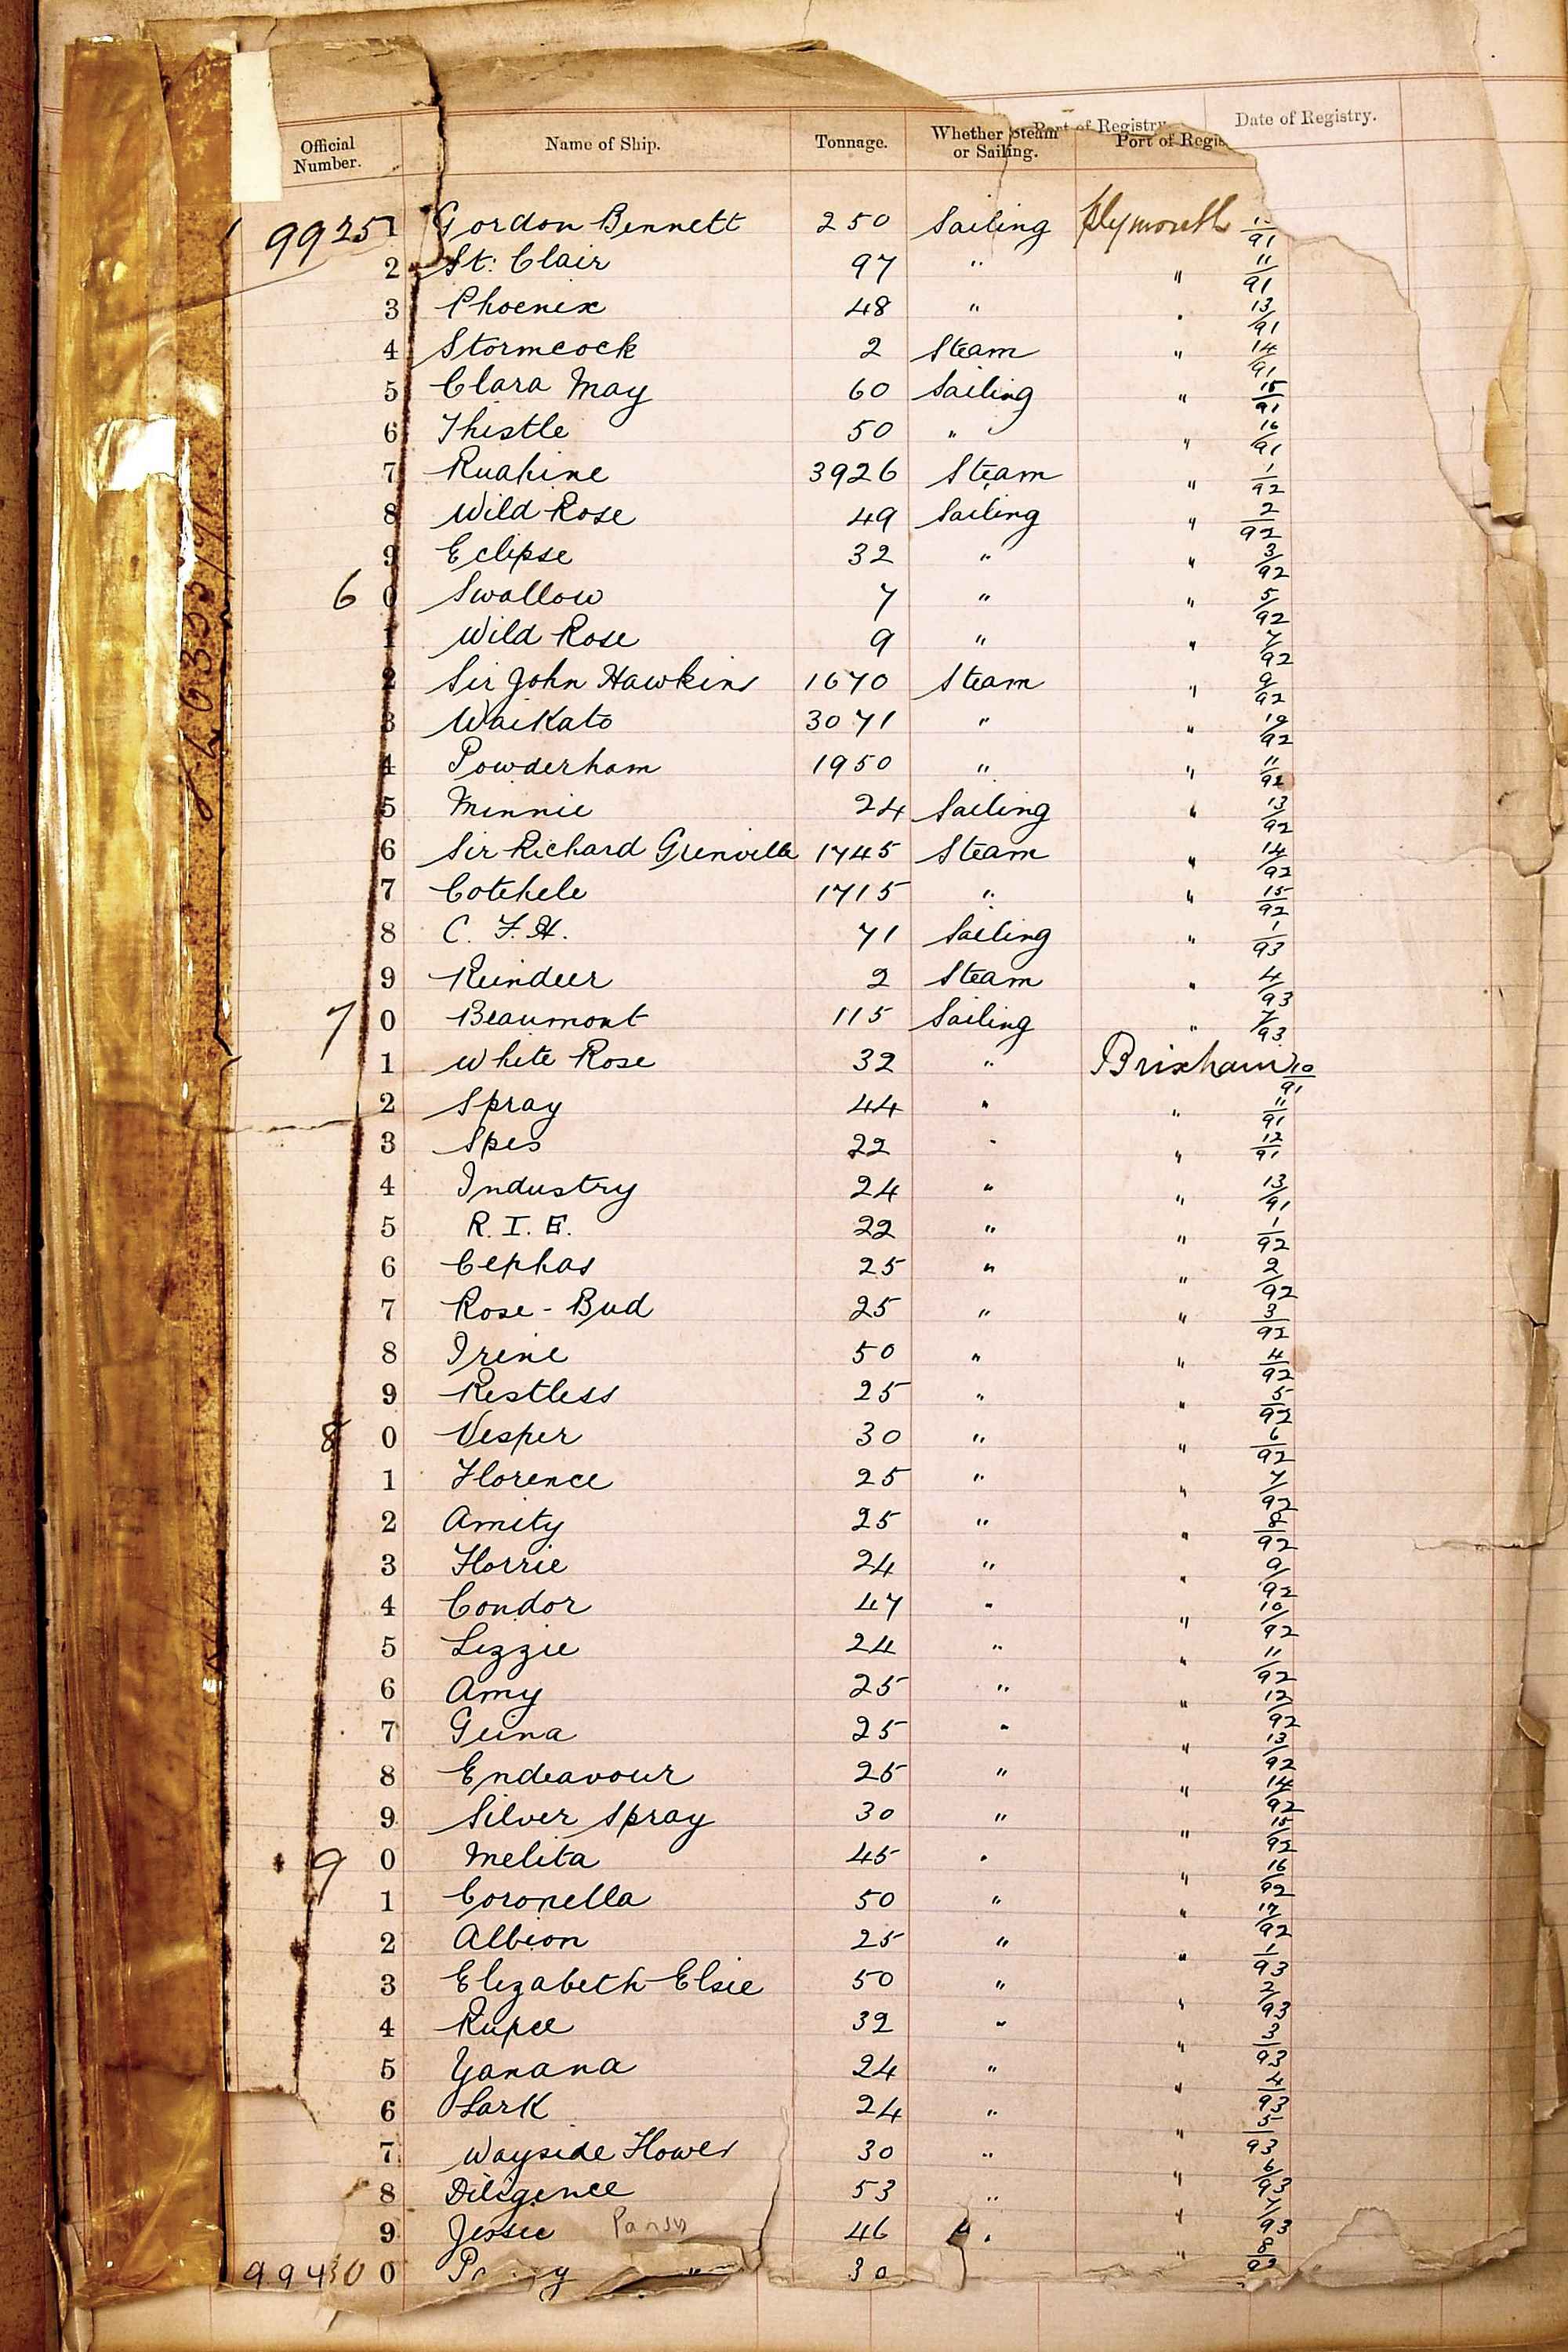 Official Number. Name of Ship. Tonnage. Whether Steam or Sailing. Port of Registry Port of Regis Date of Registry.
99251 Gordon Bennett 250 Sailing Plymouth /91
2 St. Clair 97 " " 11/91
3 Phoenix 48 " " 13/91
4 Stormcock 2 Steam " 14/91
5 Clara May 60 Sailing " 15/91
6 Thistle 50 " " 16/91
7 Ruahine 3926 Steam " 1/92
8 Wild Rose 49 Sailing " 2/92
9 Eclipse 32 " " 3/92
60 Swallow 7 " " 5/92
1 Wild Rose 9 " " 7/92
2 Sir John Hawkins 1670 Steam " 9/92
3 Waikato 3071 " " 10/92
4 Powderham 1950 " " 11/92
5 Minnie 24 Sailing " 13/92
6 Sir Richard Grenville 1745 Steam " 14/92
7 Cotehele 1715 " " 15/92
8 C. F. H. 71 Sailing " 1/93
9 Reindeer 2 Steam " 4/93
70 Beaumont 115 Sailing " 7/93
1 White Rose 32 " Brixham 10/91
2 Spray 44 " " 11/91
3 Spes 22 " " 12/91
4 Industry 24 " " 13/91
5 R. I. E. 22 " " 1/92
6 Cephas 25 " " 2/92
7 Rose-Bud 25 " " 3/92
8 Irene 50 " " 4/92
9 Restless 25 " " 5/92
80 Vesper 30 " " 6/92
1 Florence 25 " " 7/92
2 Amity 25 " " 8/92
3 Florrie 24 " " 9/92
4 Condor 47 " " 10/92
5 Lizzie 24 " " 11/92
6 Amy 25 " " 12/92
7 Geina 25 " " 13/92
8 Endeavour 25 " " 14/92
9 Silver Spray 30 " " 15/92
90 Melita 45 " " 16/92
1 Coronella 50 " " 17/92
2 Albion 25 " " 1/93
3 Elizabeth Elsie 50 " " 2/93
4 Rupee 32 " " 3/93
5 Yanana 24 " " 4/93
6 Lark 24 " " 5/93
7 Wayside Flower 30 " " 6/93
8 Diligence 53 " " 7/93
9 Jessie Pansy 46 " " 8/93
99430 0 P y 30